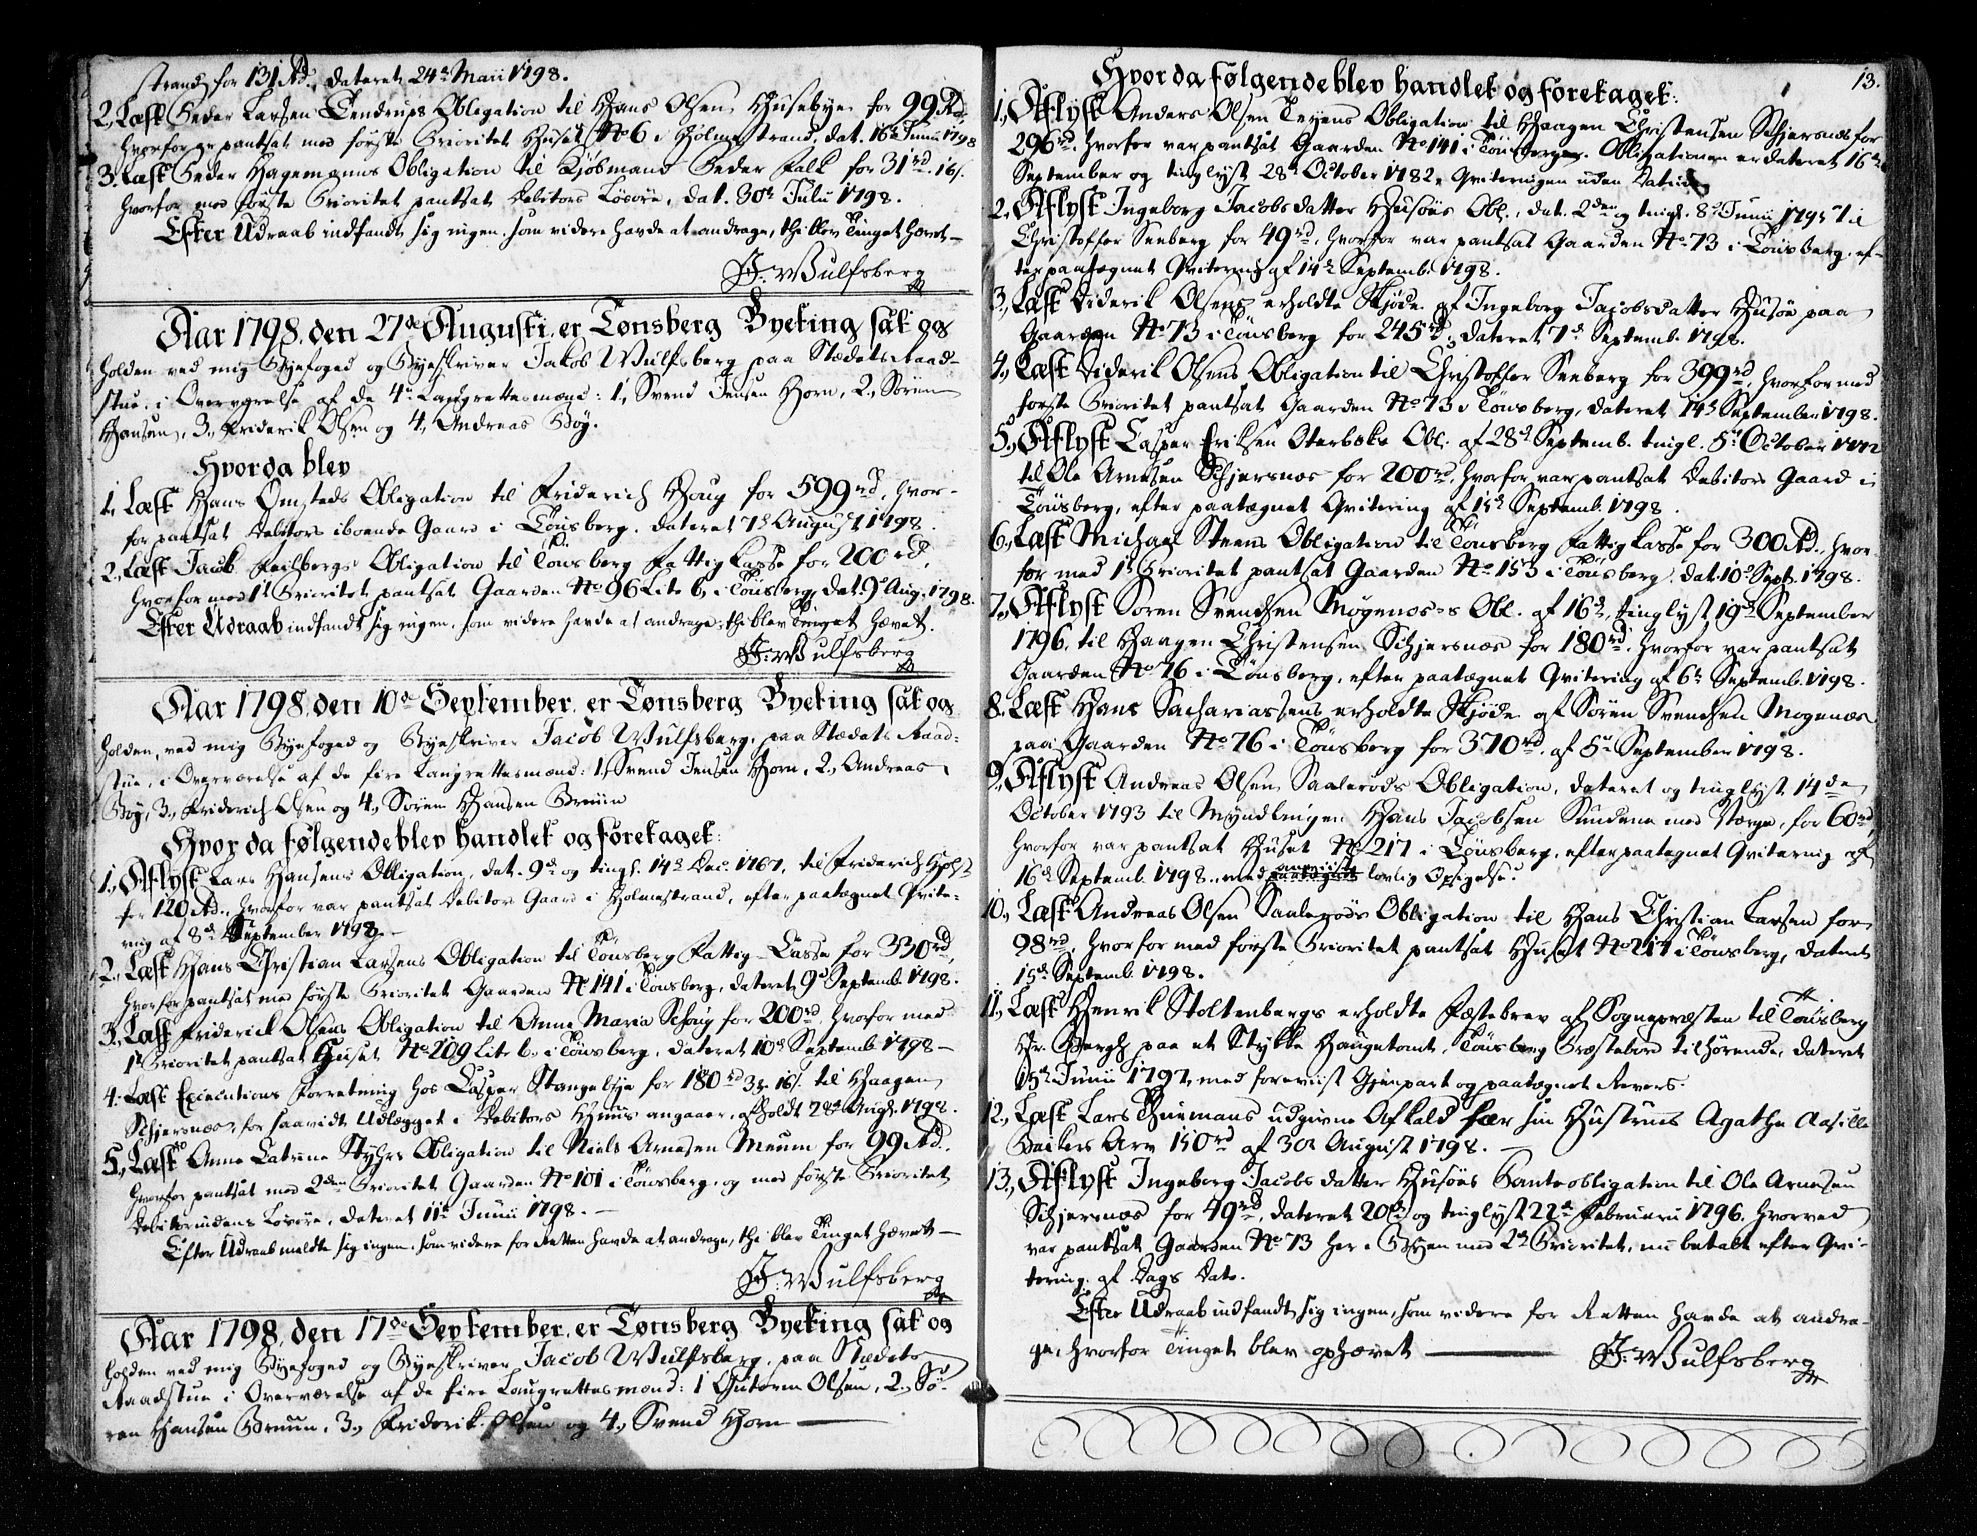 strand, for 131 Rd., dateret 24de Maii 1798.
2., Læst Peder Larsen Tendrups Obligation til Hans Olsen Husebye for 99 Rd.,
hvorfor er pantsat med første Prioritet Huuset No 6 i Holmestrand, dat. 16de Junii 1798
3., Læst Peder Hagemanns Obligation til Kjøbmand Peder Falk for 31 rd. 16 s.
hvorfor med første Prioritet pantsat Debitors Løsøre, dat. 30te Julii 1798.
Efter Udraab indfandt sig ingen, som videre havde at andrage, thi blev Tinget hævet —
J. Wulfsberg
Aar 1798, den 27de Augusti, er Tønsberg Byeting sat og
holden ved mig Byefoged og Byeskriver Jakob Wulfsberg paa Stædets Raad-
stue, i Overværelse af de 4re Laugrettesmænd: 1., Svend Jensen Horn, 2., Søren
Hansen, 3., Friderik Olsen og 4., Andreas Bøy.
Hvor da blev
1., Læst Hans Omsteds Obligation til Friderich Houg for 599 rd, hvor-
for pantsat Debitors iboende Gaard i Tønsberg, dateret 7de August 1798.
2., Læst Jacob Feilbergs Obligation til Tønsberg Fattig Casse for 200 rd,
hvorfor med 1te Prioritet pantsat Gaarden No 96 Litr b, i Tønsberg, dat. 9de Aug. 1798.
Efter Udraab indfandt sig ingen, som videre havde at andrage, thi blev Tinget hævet.
J. Wulfsberg
Aar 1798, den 10de September, er Tønsberg Byeting sat og
holden, ved mig Byefoged og Byeskriver Jacob Wulfsberg, paa Stædets Raad-
stue, i Overværelse af de fire Laugrettesmænd: 1., Svend Jensen Horn, 2., Andreas
Bøy, 3., Friderich Olsen og 4., Søren Hansen Bruun
Hvor da følgende blev handlet og foretaget:
1., Aflyst Lars Hansens Obligation, dat. 9de og tingl. 14de Dec. 1767, til Friderich Holst
for 120 Rd., hvorfor var pantsat Debitors Gaard i Holmestrand, efter paategnet Qvite-
ring af 8de September 1798.
2., Læst Hans Christian Larsens Obligation til Tønsberg Fattig-Casse for 330 rd,
hvorfor pantsat med første Prioritet Gaarden No 141 i Tønsberg, dateret 9de Septemb. 1798.
3., Læst Friderich Olsens Obligation til Anne Maria Schoug for 200 rd, hvorfor med
1te Prioritet pantsat Huuset No 109 Litr b., i Tønsberg, dateret 10de Septemb. 1798 —
4., Læst Executions Forretning hos Casper Stangebye for 180 rd 3 16 s. til Haagen
Schjersnes, for saavidt Udlægget i Debitors Huus angaaer, afholdt 28de Augs. 1798.
5., Læst Anne Catrine Styhrs Obligation til Niels Arnesen Meum for 99 Rd.,
hvorfor pantsat med 2den Prioritet Gaarden No 101 i Tønsberg, og med første Prioritet
Debitorindens Løsøre, dateret 11te Junii 1798. —
Efter Udraab meldte sig ingen, som videre for Retten havde at andrage, thi blev Tinget hævet —
J. Wulfsberg
Aar 1798, den 17de September, er Tønsberg Byeting sat og
holden ved mig Byefoged og Byeskriver Jacob Wulfsberg, paa Stædets
Raadstue i Overværelse af de fire Laugrettesmænd: 1 Gutorm Olsen, 2., Sø-
ren Hansen Bruun, 3., Friderik Olsen og 4., Svend Horn —
13.
Hvor da følgende blev handlet og foretaget:
1., Aflyst Anders Olsen Teyens Obligation til Haagen Christensen Schjersnes for
296 rd., hvorfor var pantsat Gaarden No 141 i Tønsberg. Obligationen er dateret 16de
September og tinglyst 28de October 1782, Qviteringen uden Datum
2., Aflyst Ingeborg Jacobsdatter Husøes Obl., dat. 2den og tingl. 8de Junii 1795 til
Christoffer Seeberg for 49 rd, hvorfor var pantsat Gaarden No 73 i Tønsberg, ef-
ter paategnet Qvitering af 14de Septemb. 1798.
3., Læst Diderik Olsens erholdte Skjøde af Ingeborg Jacobsdatter Husøe paa
Gaarden No 73 i Tønsberg for 245 rd, dateret 7de Septemb. 1798.
4., Læst Diderik Olsens Obligation til Christoffer Seeberg for 399 rd, hvorfor med
første Prioritet pantsat Gaarden No 73 i Tønsberg, dateret 14de September 1798.
5., Aflyst Casper Eriksen Oterbeks Obl. af 28de Septemb. tingl. 5te October 1772
til Ole Arnesen Schjersnes for 200 rd, hvorfor var pantsat Debitors Gaard i
Tønsberg, efter paategnet Qvitering af 15de Septemb. 1798.
6., Læst Michael Steens Obligation til Tønsberg Fattig Casse for 300 Rd., hvor-
for med 1te Prioritet pantsat Gaarden No 153 i Tønsberg, dat. 10de Sept. 1798.
7., Aflyst Søren Svendsen Mogenæs's Obl. af 16de, tinglyst 19de September
1796, til Haagen Christensen Schjersnæs for 180 rd, hvorfor var pantsat
Gaarden No 76 i Tønsberg, efter paategnet Qvitering af 6te Septemb. 1798.
8., Læst Hans Sachariassens erholdte Skjøde af Søren Svendsen Mogenæs
paa Gaarden No 76 i Tønsberg for 370 rd, af 5te September 1798.
9., Aflyst Andreas Olsen Saalerøds Obligation, dateret og tinglyst 14de
October 1793 til Myndlingen Hans Jacobsen Sundene med Værge, for 60 rd,
hvorfor var pantsat Huuset No 217 i Tønsberg, efter paategnet Qvitering af
16de Septemb. 1798, med lovlig Opsigelse.
10., Læst Andreas Olsen Saalerøds Obligation til Hans Christian Larsen for
98 rd, hvorfor med første Prioritet pantsat Huuset No 217 i Tønsberg, dateret
15de Septemb. 1798.
11., Læst Henrik Stoltenbergs erholdte Fæstebrev af Sognepræsten til Tønsberg
Hr. Bergh paa et Stykke Haugetomt, Tønsberg Præstebord tilhørende, dateret
15de Junii 1797, med foreviist Gjenpart og paategnet Revers.
12., Læst Lars Thuemans udgivne Afkald for sin Hustrues Agathe
Beckers Arv 150 rd af 30te August 1798. —
13., Aflyst Ingeborg Jacobsdatter Husøes Panteobligation til Ole Arnesen
Schjersnæs for 49 rd, dateret 20de og tinglyst 22de Februari 1796, hvorved
var pantsat Gaarden No 73 her i Byen med 2den Prioritet, nu betalt efter Qvi-
tering af Dags Dato.
Efter Udraab indfandt sig ingen, som videre for Retten havde at andra-
ge, hvorfor Tinget blev ophævet —
J. Wulfsberg